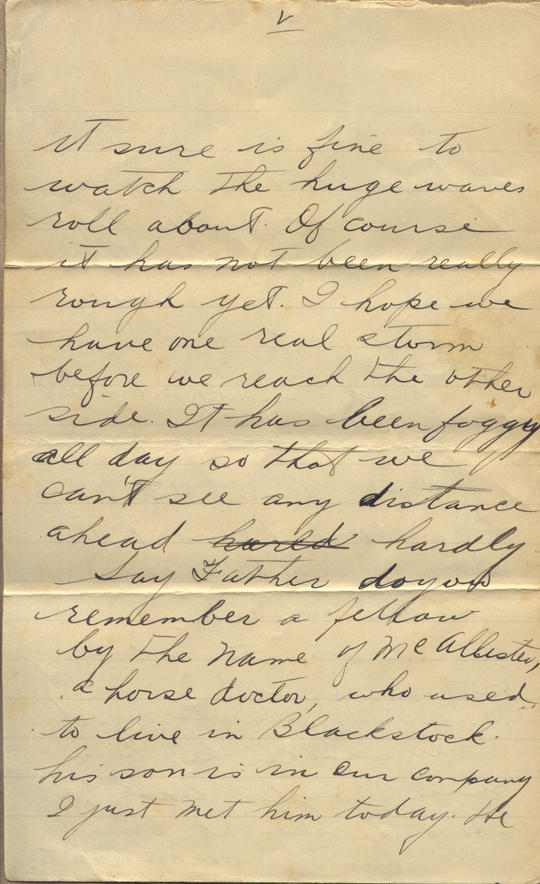 V
it sure is fine to
watch the huge waves
roll about. Of course
it has not been really
rough yet. I hope we
have one real storm
before we reach the other
side. It has been foggy
all day so that we
can't see any distance
ahead hardly
Say Father do you
remember a fellow
by the name of McAllister,
a horse doctor, who used
to live in Blackstock.
his son is in our company
I just met him today. He